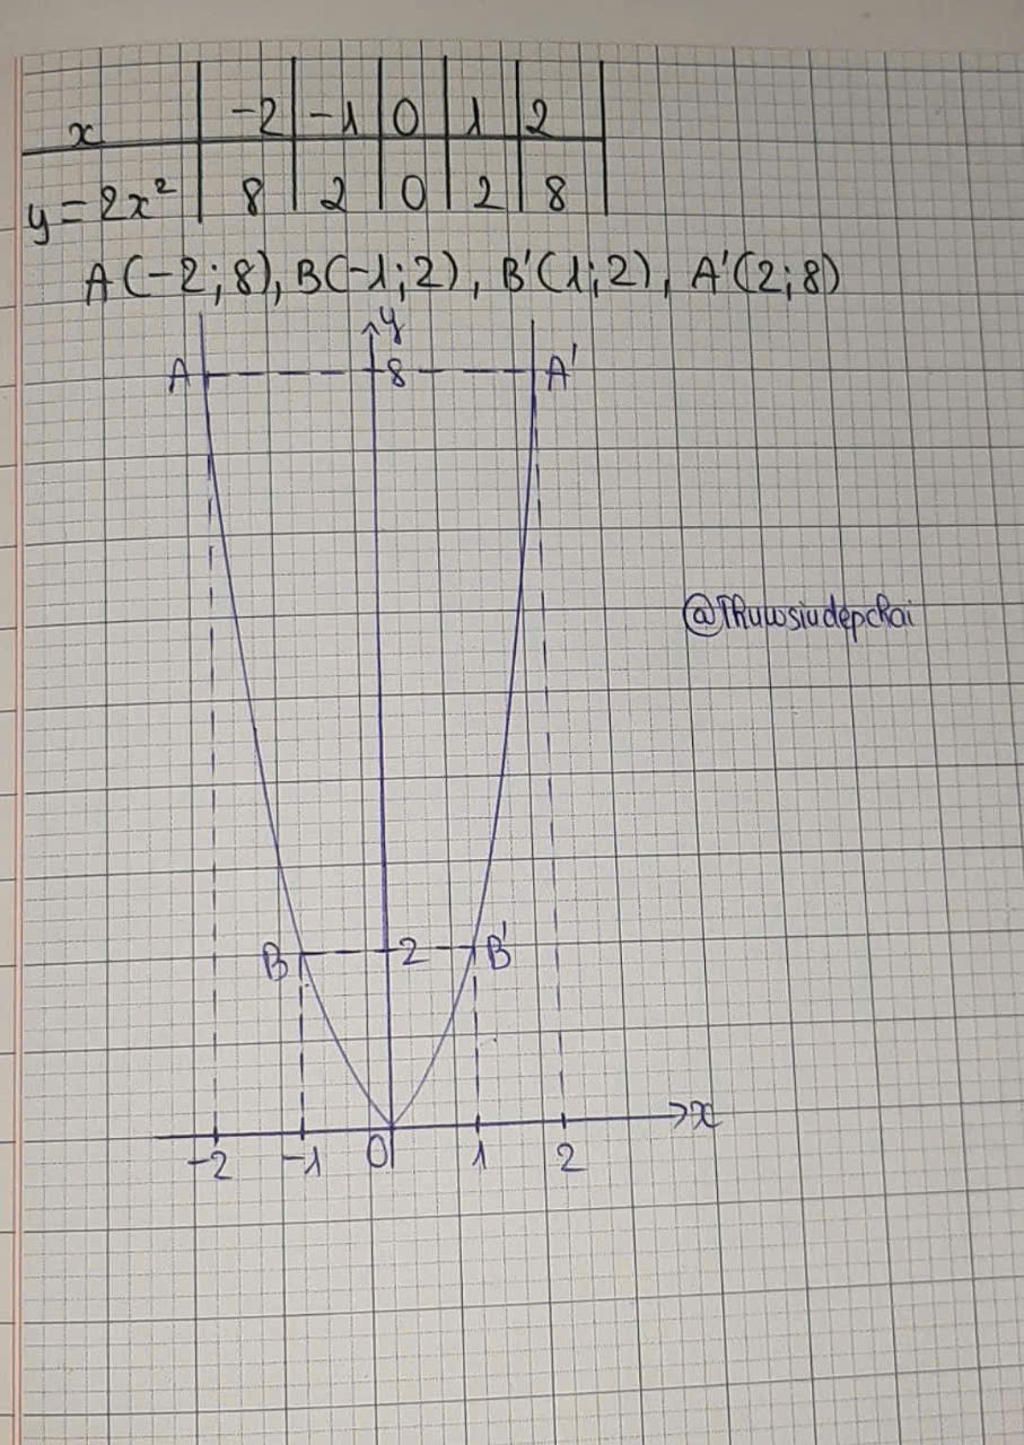 x -2 -1 0 1 2
y = 2x² 8 2 0 2 8
A(-2;8), B(-1;2), B'(1;2), A'(2;8)
y
A 8 A'
@Thuwsiudepchai
B 2 B'
x
-2 -1 0 1 2